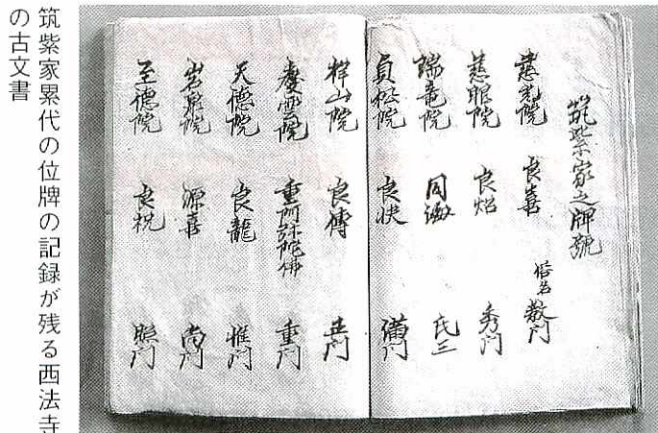 筑紫家之牌號
慈光院 良喜 俗名 教門
慈眼院 良炤 秀門
瑞竜院 同海 氏三
貞松院 良快 満門
祥山院 良傳 正門
慶雲院 重阿弥陀佛 重門
天德院 良龍 惟門
岩泉院 源喜 尚門
至德院 良祝 照門
筑紫家累代の位牌の記録が残る西法寺
の古文書